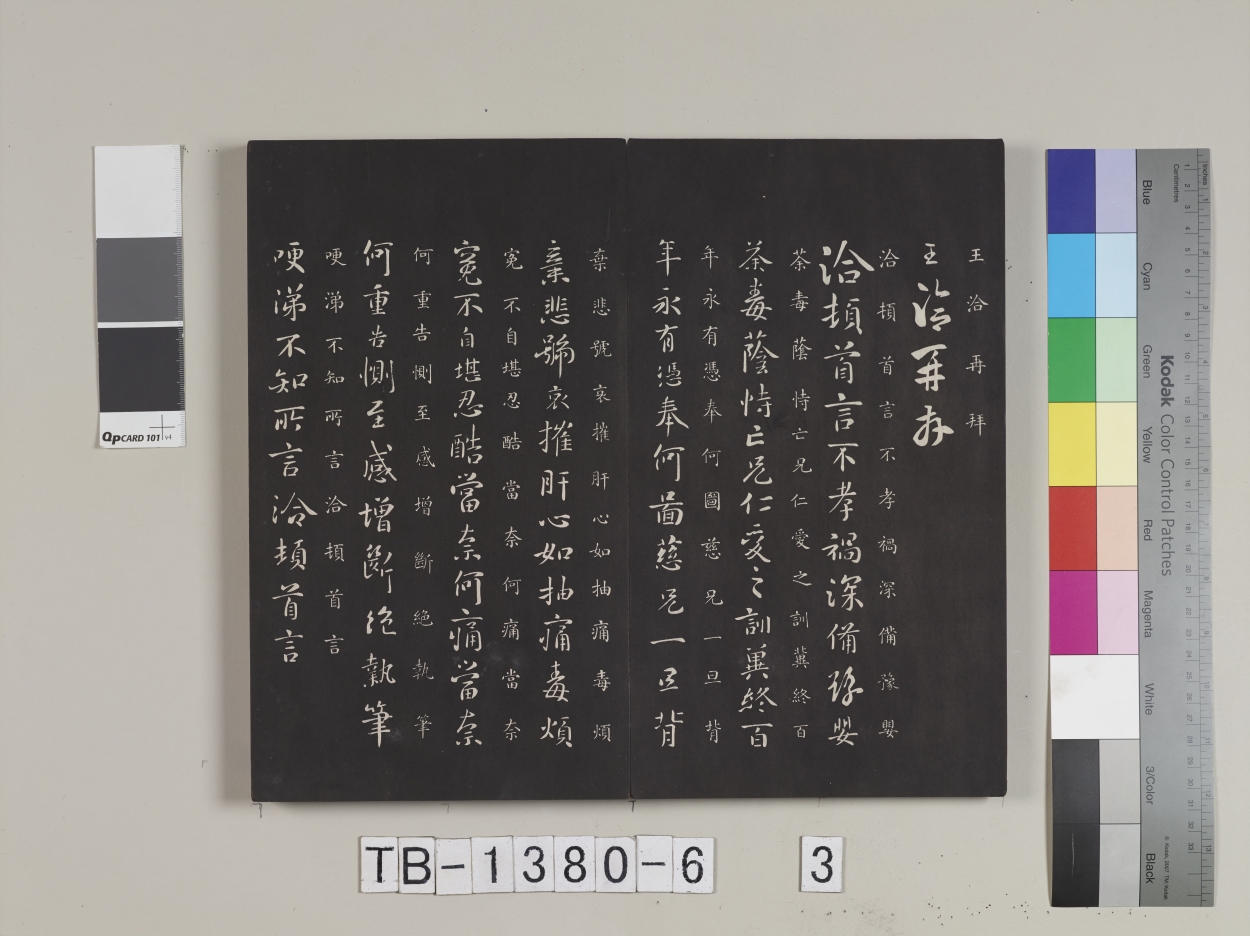 王洽再拜
王洽再拜
洽頓首言不孝禍深備豫嬰
洽頓首言不孝禍深備豫嬰
荼毒蔭恃亡兄仁愛之訓冀終百
荼毒蔭恃亡兄仁愛之訓冀終百
年永有憑奉何圖慈兄一旦背
年永有憑奉何啚慈兄一旦背
棄悲號哀摧肝心如抽痛毒煩
棄悲號哀摧肝心如抽痛毒煩
冤不自堪忍酷當奈何痛當奈
冤不自堪忍酷當奈何痛當奈
何重告惻至感增斷絕執筆
何重告惻至感增斷絕執筆
哽涕不知所言洽頓首言
哽涕不知所言洽頓首言
QPCARD 101 v4
TB-1380-6 3
Kodak Color Control Patches
Blue Cyan Green Yellow Red Magenta White 3/Color Black
Inches
Centimetres